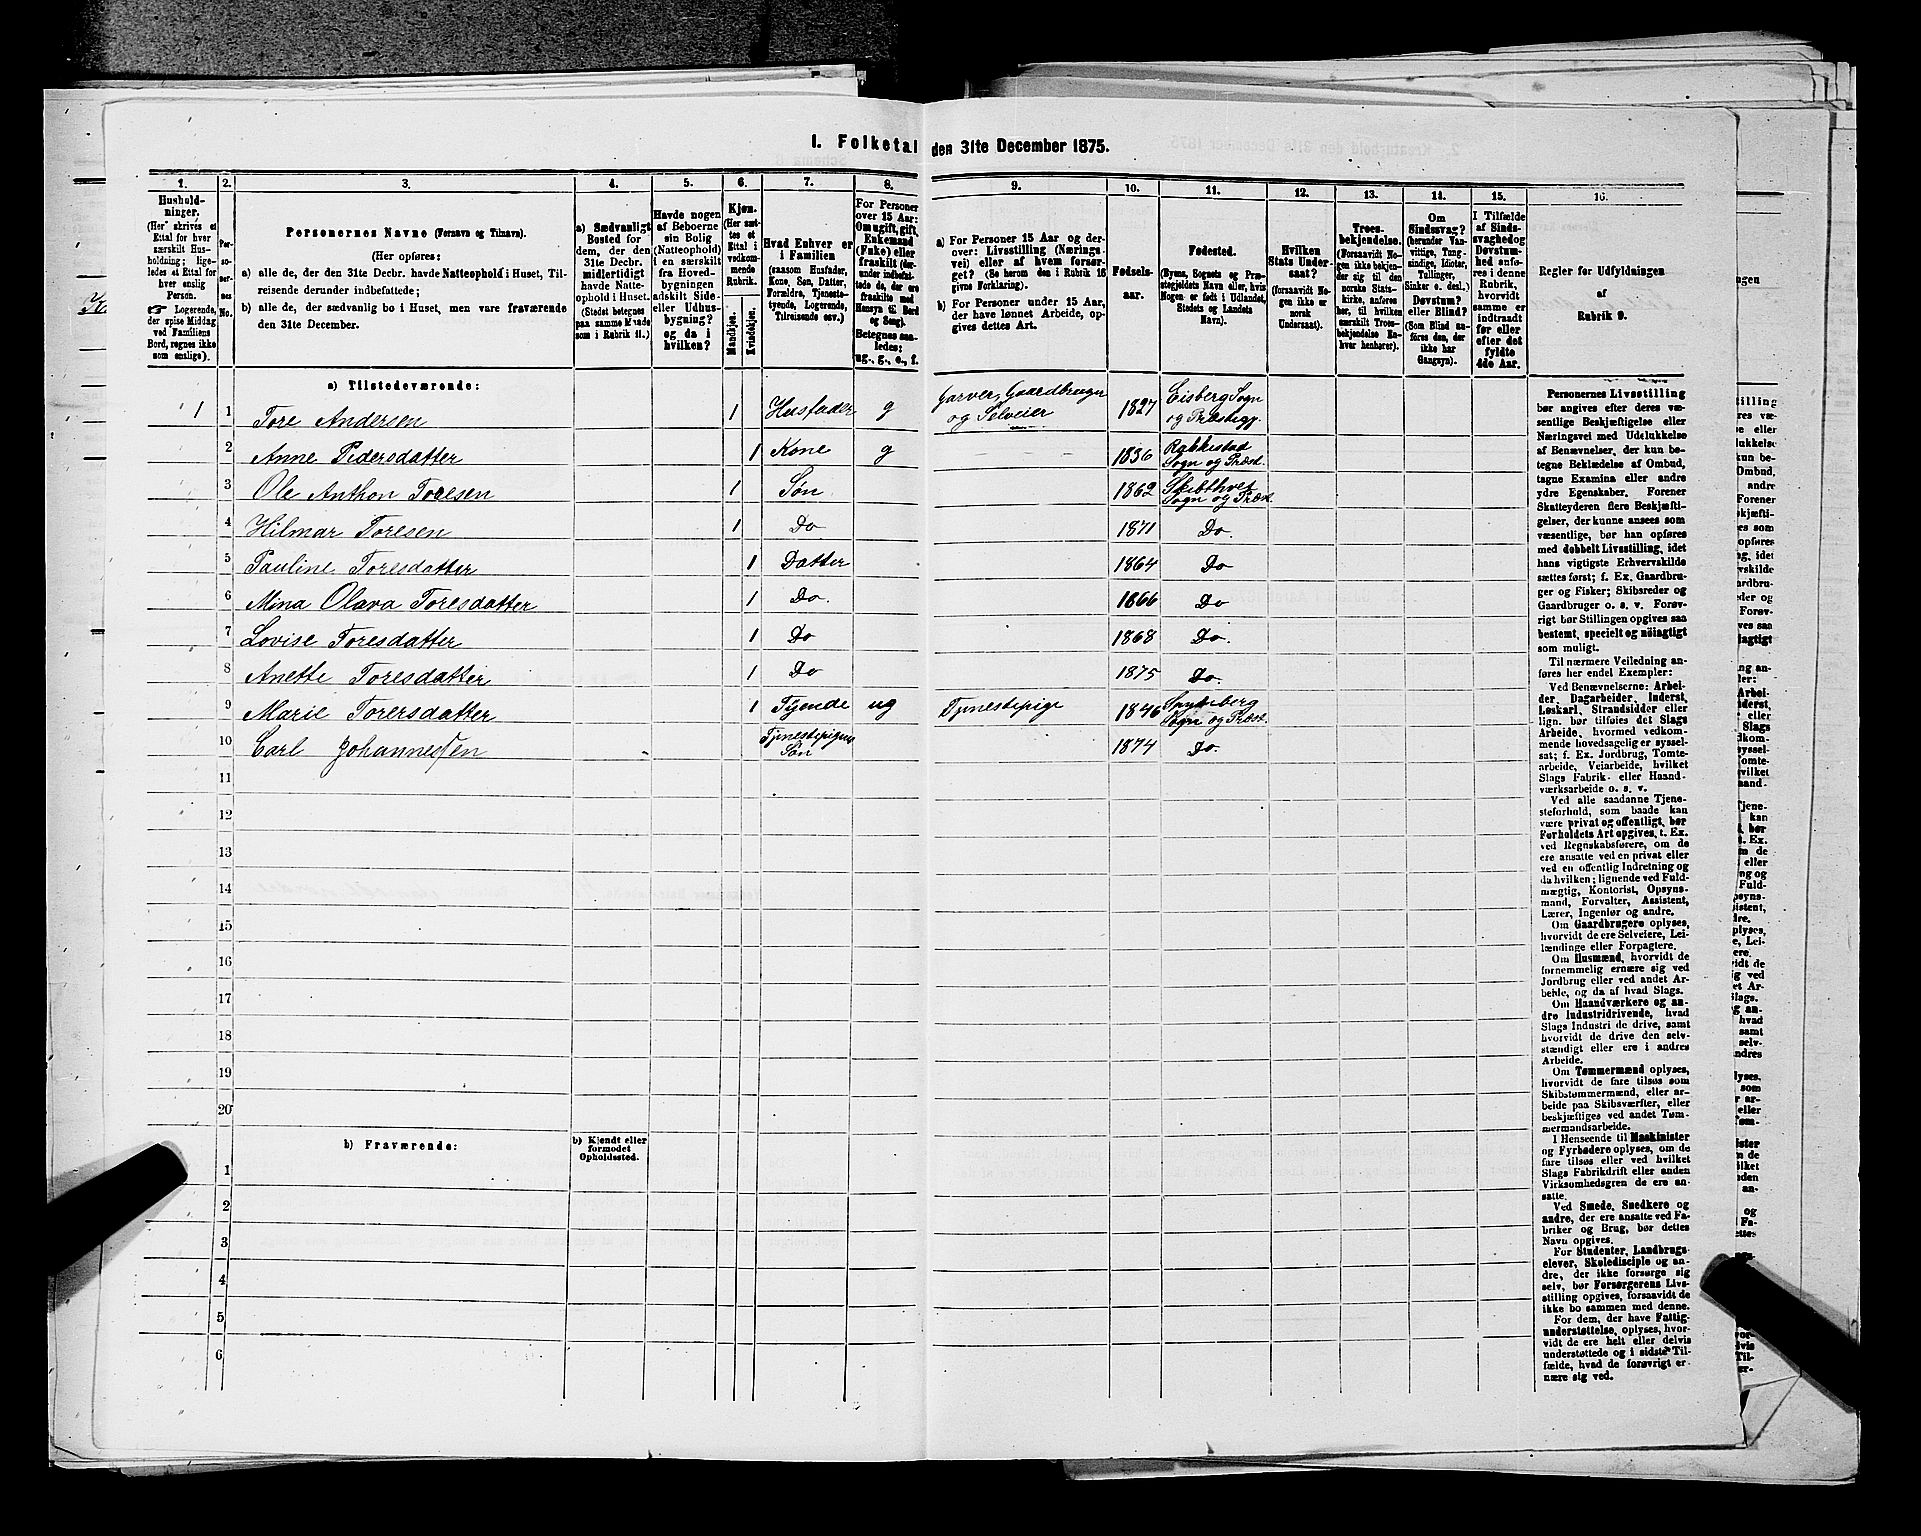 1. Folketal den 31te December 1875.
1. 2. 3. 4. 5. 6. 7. 8. 9. 10. 11. 12. 13. 14. 15. 16.
Hushold-
ninger.
(Her skrives et
Ettal for hver
særskilt Hus-
holdning; lige-
ledes et Ettal for
hver enslig
Person.
☞ Logerende,
der spise Middag
ved Familiens
Bord, regnes ikke
som enslige).
Per-
so-
ner-
nes
No.
Personernes Navne (Fornavn og Tilnavn).
(Her opføres:
a) alle de, der den 31te Decbr. havde Natteophold i Huset, Til-
reisende derunder indbefattede;
b) alle de, der sædvanlig bo i Huset, men vare fraværende
den 31te December.
a) Sædvanligt
Bosted for
dem, der den
31te Decbr.
midlertidigt
havde Natte-
ophold i Huset.
(Stedet betegnes
paa samme Maade
som i Rubrik 11.)
Havde nogen
af Beboerne
sin Bolig
(Natteophold)
i en særskilt
fra Hoved-
bygningen
adskilt Side-
eller Udhus-
bygning?
og da i
hvilken?
Kjøn.
(Her sæt-
tes et
Ettal i
vedkom-
mende
Rubrik.
Mandkjøn.
Kvindekjøn.
Hvad Enhver er
i Familien
(saasom Husfader,
Kone, Søn, Datter,
Forældre, Tjeneste-
tyende, Logerende,
Tilreisende osv.)
For Personer
over 15 Aar:
Om ugift, gift,
Enkemand
(Enke) eller
fraskilt (der-
under indbefat-
tede de, der ere
fraskilte med
Hensyn til Bord
og Seng).
Betegnes saa-
ledes:
ug., g., e., f.
a) For Personer 15 Aar og der-
over: Livsstilling (Nærings-
vei) eller af hvem forsør-
get? (Se herom den i Rubrik 16
givne Forklaring).
b) For Personer under 15 Aar,
der have lønnet Arbeide, op-
gives dettes Art.
Fødsels-
aar.
Fødested.
(Byens, Sognets og Præ-
stegjeldets Navn eller, hvis
Nogen er født i Udlandet,
Stedets og Landets
Navn).
Hvilken
Stats Under-
saat?
(forsaavidt No-
gen ikke er
norsk
Undersaat).
Troes-
bekjendelse.
(Forsaavidt No-
gen ikke bekjen-
der sig til den
norske Stats-
kirke, anføres
her, til hvilken
særskilt Troes-
bekjendelse En-
hver henhører).
Om
Sindssvag?
(herunder Van-
vittige, Tung-
sindige, Idioter,
Tullinger,
Sinker o. desl.)
Døvstum?
eller Blind?
(Som Blind an-
føres den, der
ikke har
Gangsyn).
I Tilfælde
af Sinds-
svaghed og
Døvstum-
hed anfø-
res i denne
Rubrik,
hvorvidt
samme er
indtraadt
før eller
efter det
fyldte
4de Aar.
Regler for Udfyldningen
af
Rubrik 9.
a) Tilstedeværende:
1 1 Tore Andersen 1 Husfader g Garver, Gaardbruger og Selveier 1827 Eisberg Sogn og Præstegj.
2 Anne Pedersdatter 1 Kone g 1836 Rakkestad Sogn og Præst.
3 Ole Anthon Toresen 1 Søn 1862 Skibthvet Sogn og Præst.
4 Hilmar Toresen 1 Do 1871 Do.
5 Pauline Toresdatter 1 Datter 1864 Do
6 Mina Olava Toresdatter 1 Do. 1866 Do
7 Lovise Toresdatter 1 Do 1868 Do.
8 Anette Toresdatter 1 Do 1875 Do.
9 Marie Torersdatter 1 Tyende ug Tjenestepige 1846 Spydeberg Sogn og Præst.
10 Carl Johannessen Tjenestepigens Søn 1874 Do.
11
12
13
14
15
16
17
18
19
20
b) Fraværende:
b) Kjendt eller
formodet
Opholdssted.
1
2
3
4
5
6
Personernes Livsstilling
bør angives efter deres væ-
sentlige Beskjæftigelse eller
Næringsvei med Udelukkelse
af Benævnelser, der kun be-
tegne Beklædelse af Ombud,
tagne Examina eller andre
ydre Egenskaber. Forener
Skatteyderen flere Beskjæfti-
gelser, der kunne ansees som
væsentlige, bør han opføres
med dobbelt Livsstilling, idet
hans vigtigste Erhvervskilde
sættes først; f. Ex. Gaardbru-
ger og Fisker; Skibsreder og
Gaardbruger o. s. v. Forøv-
rigt bør Stillingen opgives saa
bestemt, specielt og nøiagtigt
som muligt.
Til nærmere Veiledning an-
føres her endel Exempler:
Ved Benævnelserne: Arbei-
der, Dagarbeider, Inderst,
Løskarl, Strandsidder eller
lign. bør tilføies det Slags
Arbeide, hvormed vedkom-
mende hovedsagelig er syssel-
sat; f. Ex. Jordbrug, Tomte-
arbeide, Veiarbeide, hvilket
Slags Fabrik- eller Haand-
værksarbeide o. s. v.
Ved alle saadanne Tjene-
steforhold, som baade kan
være privat og offentligt, bør
Forholdets Art opgives, t. Ex.
ved Regnskabsførere, om de
ere ansatte ved en privat eller
ved en offentlig Indretning og
da hvilken; lignende ved Fuld-
mægtig, Kontorist, Opsyns-
mand, Forvalter, Assistent,
Lærer, Ingeniør og andre.
Om Gaardbrugere oplyses,
hvorvidt de ere Selveiere, Lei-
lændinge eller Forpagtere.
Om Husmænd, hvorvidt de
fornemmelig ernære sig ved
Jordbrug eller ved andet Ar-
beide, og da af hvad Slags.
Om Haandværkere og an-
dre Industridrivende, hvad
Slags Industri de drive, samt
hvorvidt de drive den selv-
stændigt eller ere i andres
Arbeide.
Om Tømmermænd oplyses,
hvorvidt de fare tilsøs som
Skibstømmermænd, eller ar-
beide paa Skibsværfter, eller
beskjæftiges ved andet Tøm-
mermandsarbeide.
I Henseende til Maskinister
og Fyrbødere oplyses, om de
fare tilsøs eller ved hvilket
Slags Fabrikdrift eller anden
Virksomhedsgren de ere an-
satte.
Ved Smede, Snedkere og
andre, der ere ansatte ved Fa-
briker og Brug, bør dettes
Navn opgives.
For Studenter, Landbrugs-
elever, Skoledisciple og an-
dre, der ikke forsørge sig
selv, bør Forsørgerens Livs-
stilling opgives, forsaavidt de
ikke bo sammen med denne.
For dem, der have Fattig-
understøttelse, oplyses, hvor-
vidt de ere helt eller delvis
understøttede og i sidste Til-
fælde, hvad de forøvrigt er-
nære sig ved.